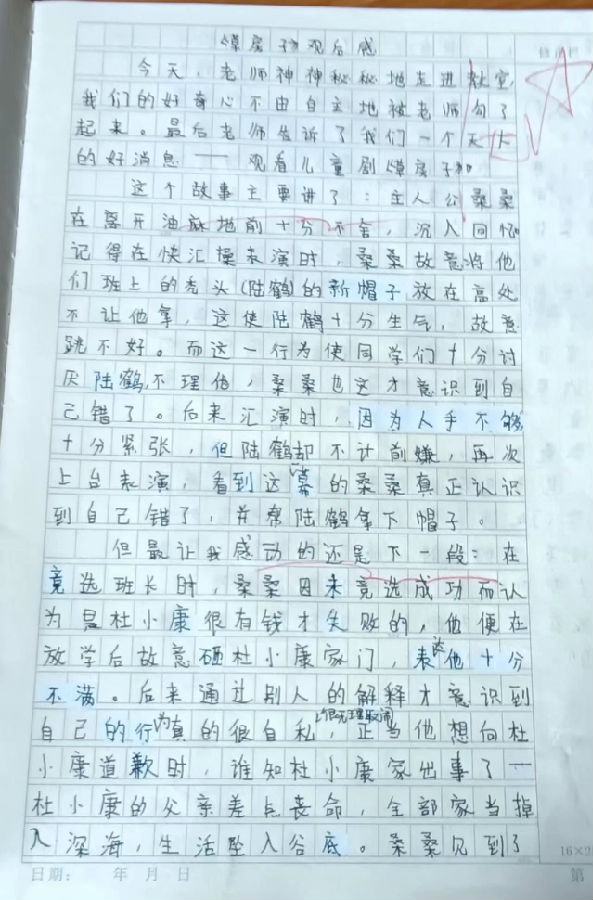 《草房子》观后感
今天，老师神神秘秘地走进教室，
我们的好奇心不由自主地被老师勾了
起来。最后老师告诉了我们一个天大
的好消息——观看儿童剧《草房子》。
这个故事主要讲了：主人公桑桑
在离开油麻地前十分不舍，沉入回忆
记得在快汇操表演时，桑桑故意将他
们班上的秃头(陆鹤)的新帽子放在高处
不让他拿，这使陆鹤十分生气，故意
跳不好。而这一行为使同学们十分讨
厌陆鹤,不理他，桑桑也这才意识到自
己错了。后来汇演时，因为人手不够
十分紧张，但陆鹤却不计前嫌，再次
上台表演，看到这一幕的桑桑真正认识
到自己错了，并帮陆鹤拿下帽子。
但最让我感动的还是下一段：在
竞选班长时，桑桑因未竞选成功而认
为是杜小康很有钱才失败的，他便在
放学后故意砸杜小康家门，表达他十分
不满。后来通过别人的解释才意识到
自己的行为真的很自私，很无理取闹，正当他想向杜
小康道歉时，谁知杜小康家出事了—
杜小康的父亲差点丧命，全部家当掉
入深海，生活坠入谷底。桑桑见到了
日期： 年 月 日
16×2
第